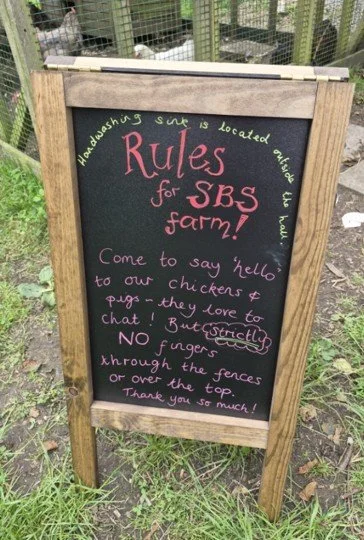 Handwashing sink is located outside the hall.
Rules
for SBS
farm!
Come to say 'hello'
to our chickens &
pigs - they love to
chat! But Strictly
NO fingers
through the fences
or over the top.
Thank you so much!